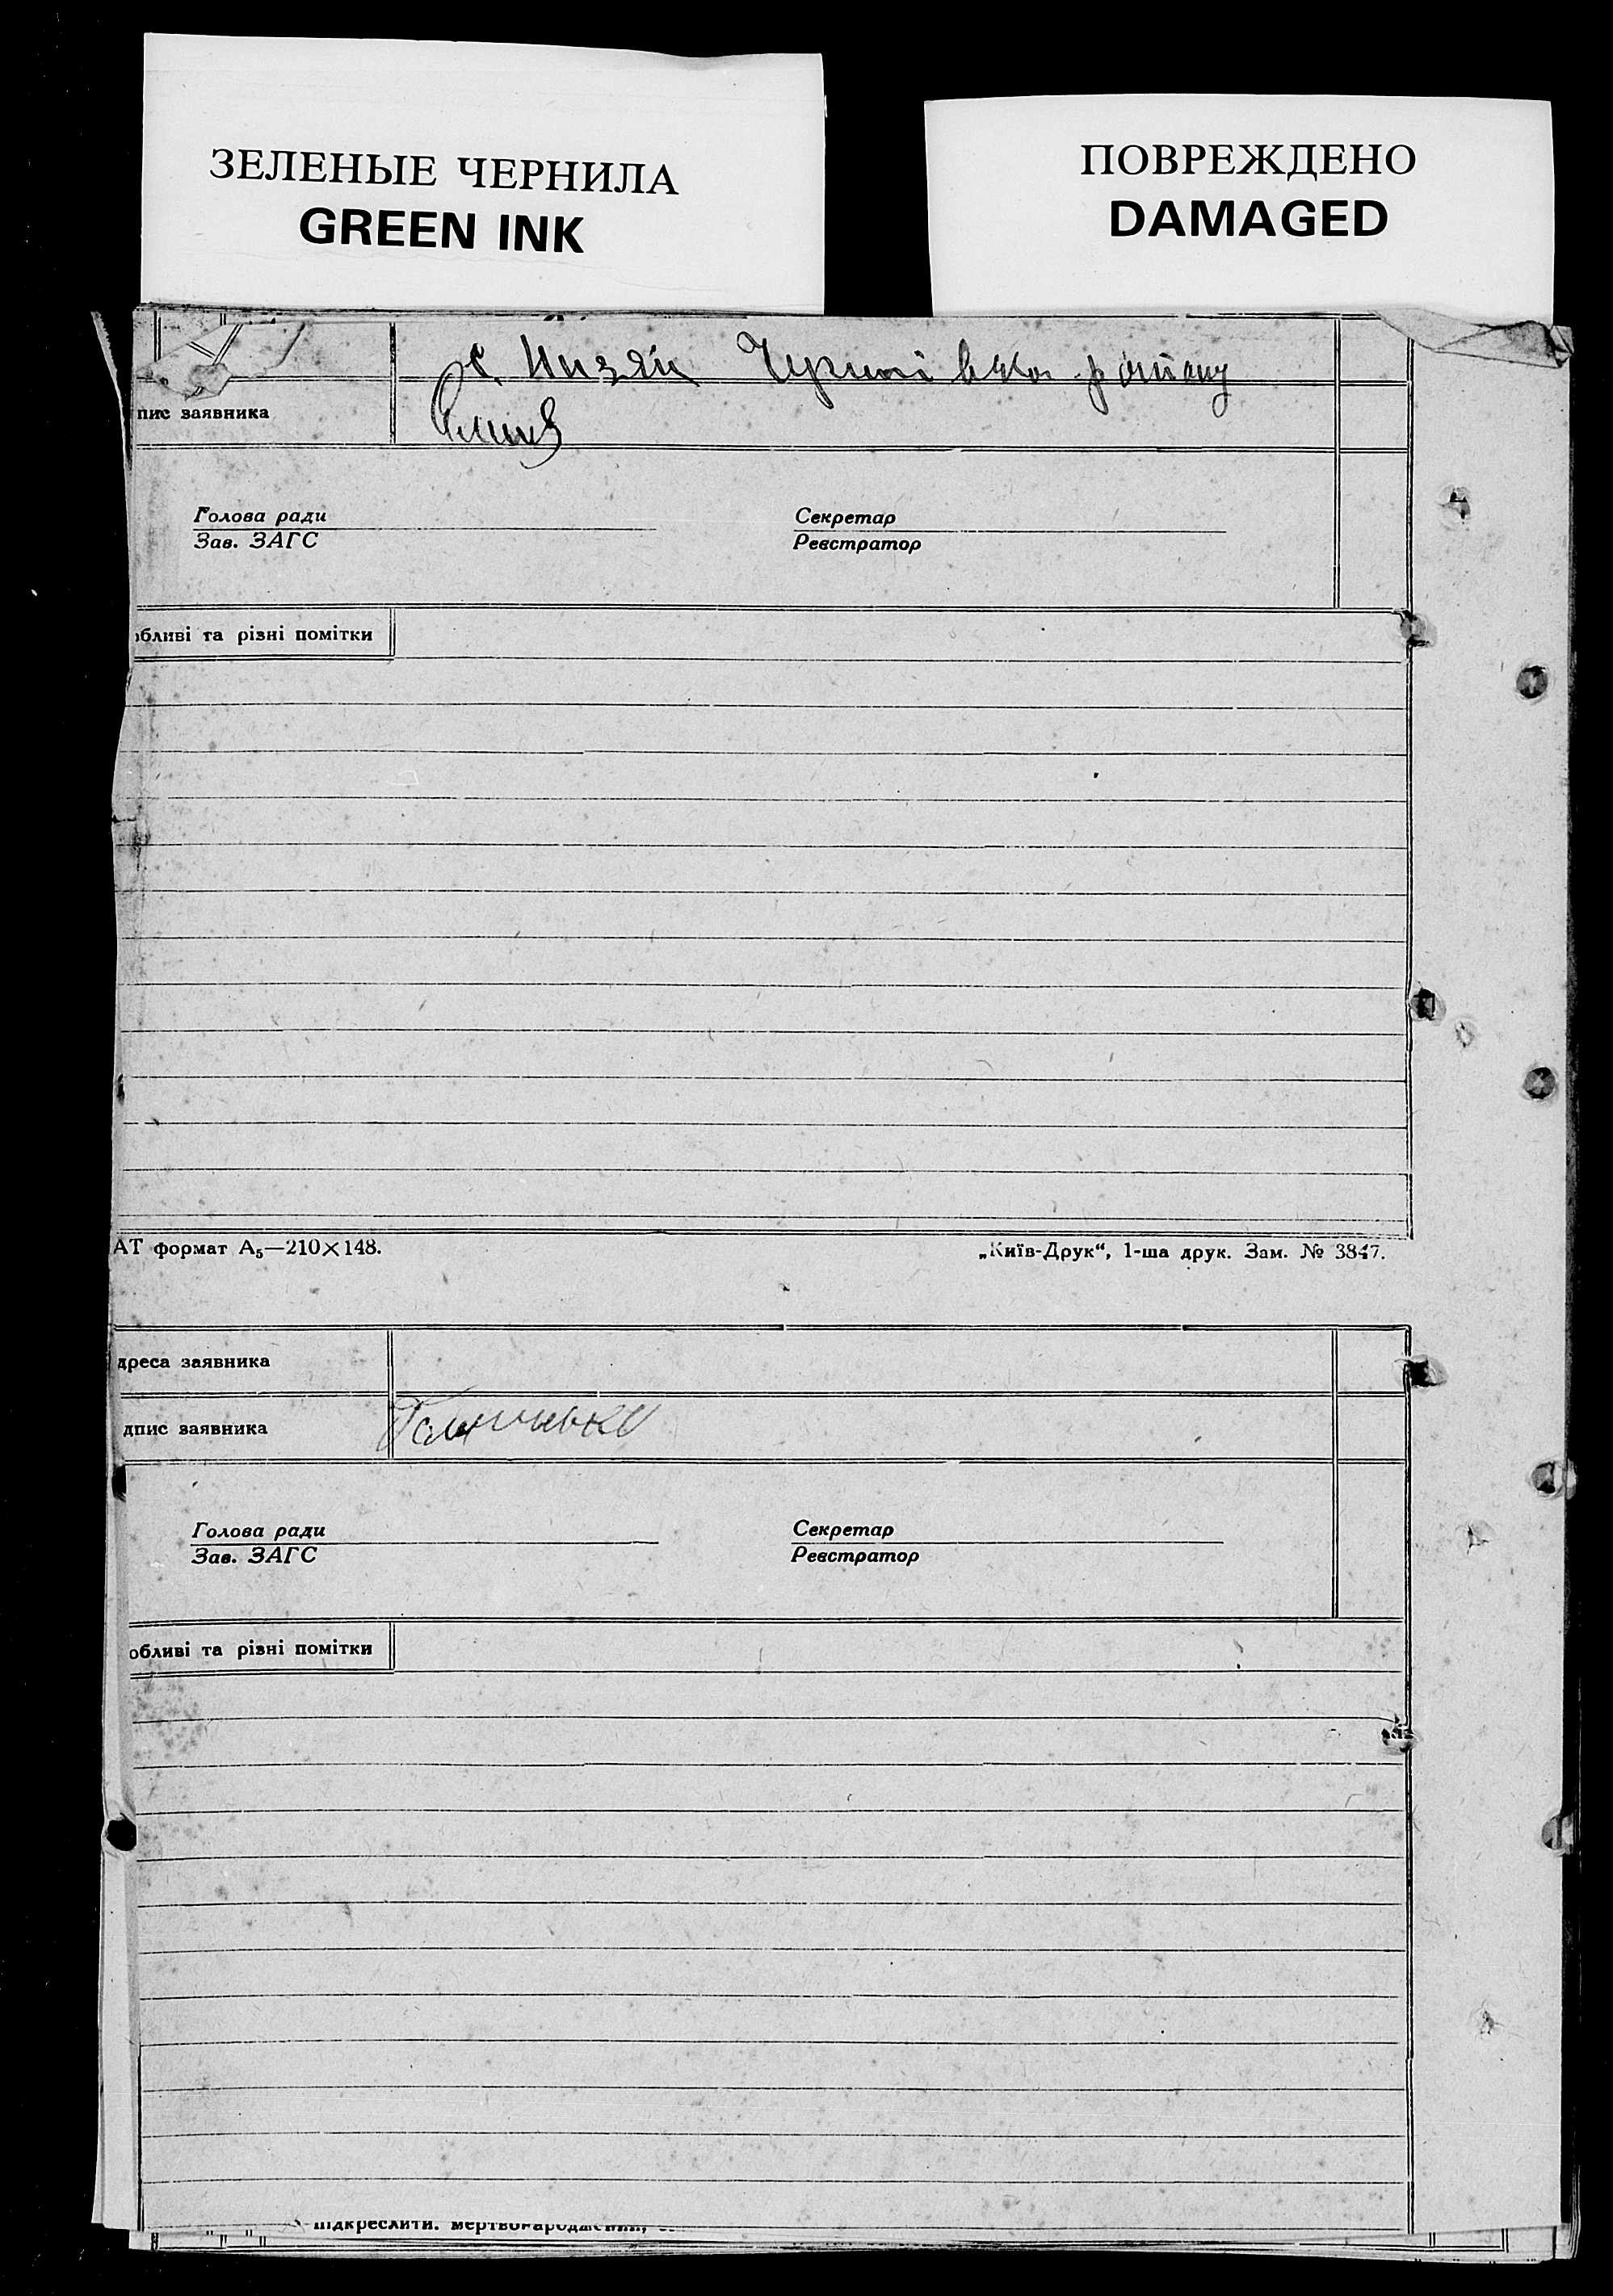 ЗЕЛЕНЫЕ ЧЕРНИЛА
GREEN INK
ПОВРЕЖДЕНО
DAMAGED
с.
пис заявника
Голова ради
Зав. ЗАГС
Секретар
Реєстратор
обливі та різні помітки
АТ формат А₅—210×148.
„Київ-Друк“, 1-ша друк. Зам. № 3847.
дреса заявника
дпис заявника
Голова ради
Зав. ЗАГС
Секретар
Реєстратор
обливі та різні помітки
підкреслити.